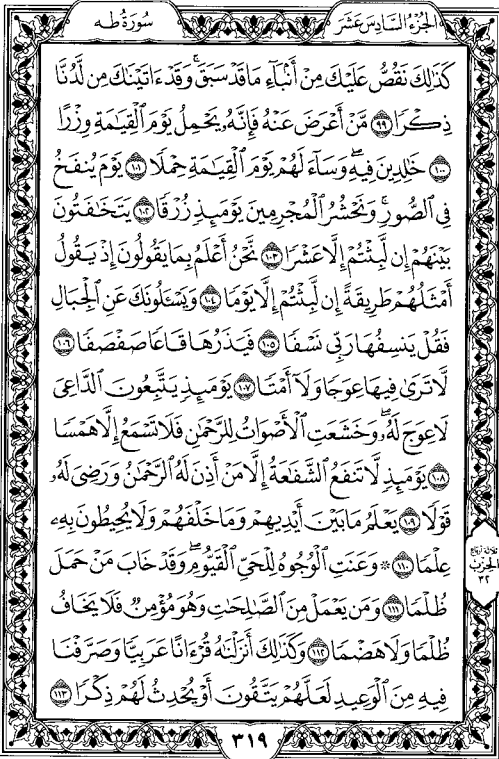 الجُزءُ السَّادِسَ عَشَرَ
سُورَةُ طه
كَذَٰلِكَ نَقُصُّ عَلَيْكَ مِنْ أَنۢبَآءِ مَا قَدْ سَبَقَ ۚ وَقَدْ ءَاتَيْنَٰكَ مِن لَّدُنَّا
ذِكْرًا ٩٩ مَّنْ أَعْرَضَ عَنْهُ فَإِنَّهُۥ يَحْمِلُ يَوْمَ ٱلْقِيَٰمَةِ وِزْرًا
١٠٠ خَٰلِدِينَ فِيهِ ۖ وَسَآءَ لَهُمْ يَوْمَ ٱلْقِيَٰمَةِ حِمْلًا ١٠١ يَوْمَ يُنفَخُ
فِى ٱلصُّورِ ۚ وَنَحْشُرُ ٱلْمُجْرِمِينَ يَوْمَئِذٍ زُرْقًا ١٠٢ يَتَخَٰفَتُونَ
بَيْنَهُمْ إِن لَّبِثْتُمْ إِلَّا عَشْرًا ١٠٣ نَّحْنُ أَعْلَمُ بِمَا يَقُولُونَ إِذْ يَقُولُ
أَمْثَلُهُمْ طَرِيقَةً إِن لَّبِثْتُمْ إِلَّا يَوْمًا ١٠٤ وَيَسْـَٔلُونَكَ عَنِ ٱلْجِبَالِ
فَقُلْ يَنسِفُهَا رَبِّى نَسْفًا ١٠٥ فَيَذَرُهَا قَاعًا صَفْصَفًا ١٠٦
لَّا تَرَىٰ فِيهَا عِوَجًا وَلَآ أَمْتًا ١٠٧ يَوْمَئِذٍ يَتَّبِعُونَ ٱلدَّاعِىَ
لَا عِوَجَ لَهُۥ ۖ وَخَشَعَتِ ٱلْأَصْوَاتُ لِلرَّحْمَٰنِ فَلَا تَسْمَعُ إِلَّا هَمْسًا
١٠٨ يَوْمَئِذٍ لَّا تَنفَعُ ٱلشَّفَٰعَةُ إِلَّا مَنْ أَذِنَ لَهُ ٱلرَّحْمَٰنُ وَرَضِىَ لَهُۥ
قَوْلًا ١٠٩ يَعْلَمُ مَا بَيْنَ أَيْدِيهِمْ وَمَا خَلْفَهُمْ وَلَا يُحِيطُونَ بِهِۦ
عِلْمًا ١١٠ ۞ وَعَنَتِ ٱلْوُجُوهُ لِلْحَىِّ ٱلْقَيُّومِ ۖ وَقَدْ خَابَ مَنْ حَمَلَ
ظُلْمًا ١١١ وَمَن يَعْمَلْ مِنَ ٱلصَّٰلِحَٰتِ وَهُوَ مُؤْمِنٌ فَلَا يَخَافُ
ظُلْمًا وَلَا هَضْمًا ١١٢ وَكَذَٰلِكَ أَنزَلْنَٰهُ قُرْءَانًا عَرَبِيًّا وَصَرَّفْنَا
فِيهِ مِنَ ٱلْوَعِيدِ لَعَلَّهُمْ يَتَّقُونَ أَوْ يُحْدِثُ لَهُمْ ذِكْرًا ١١٣
ثلاثة أرباع
الحزب
٣٢
٣١٩